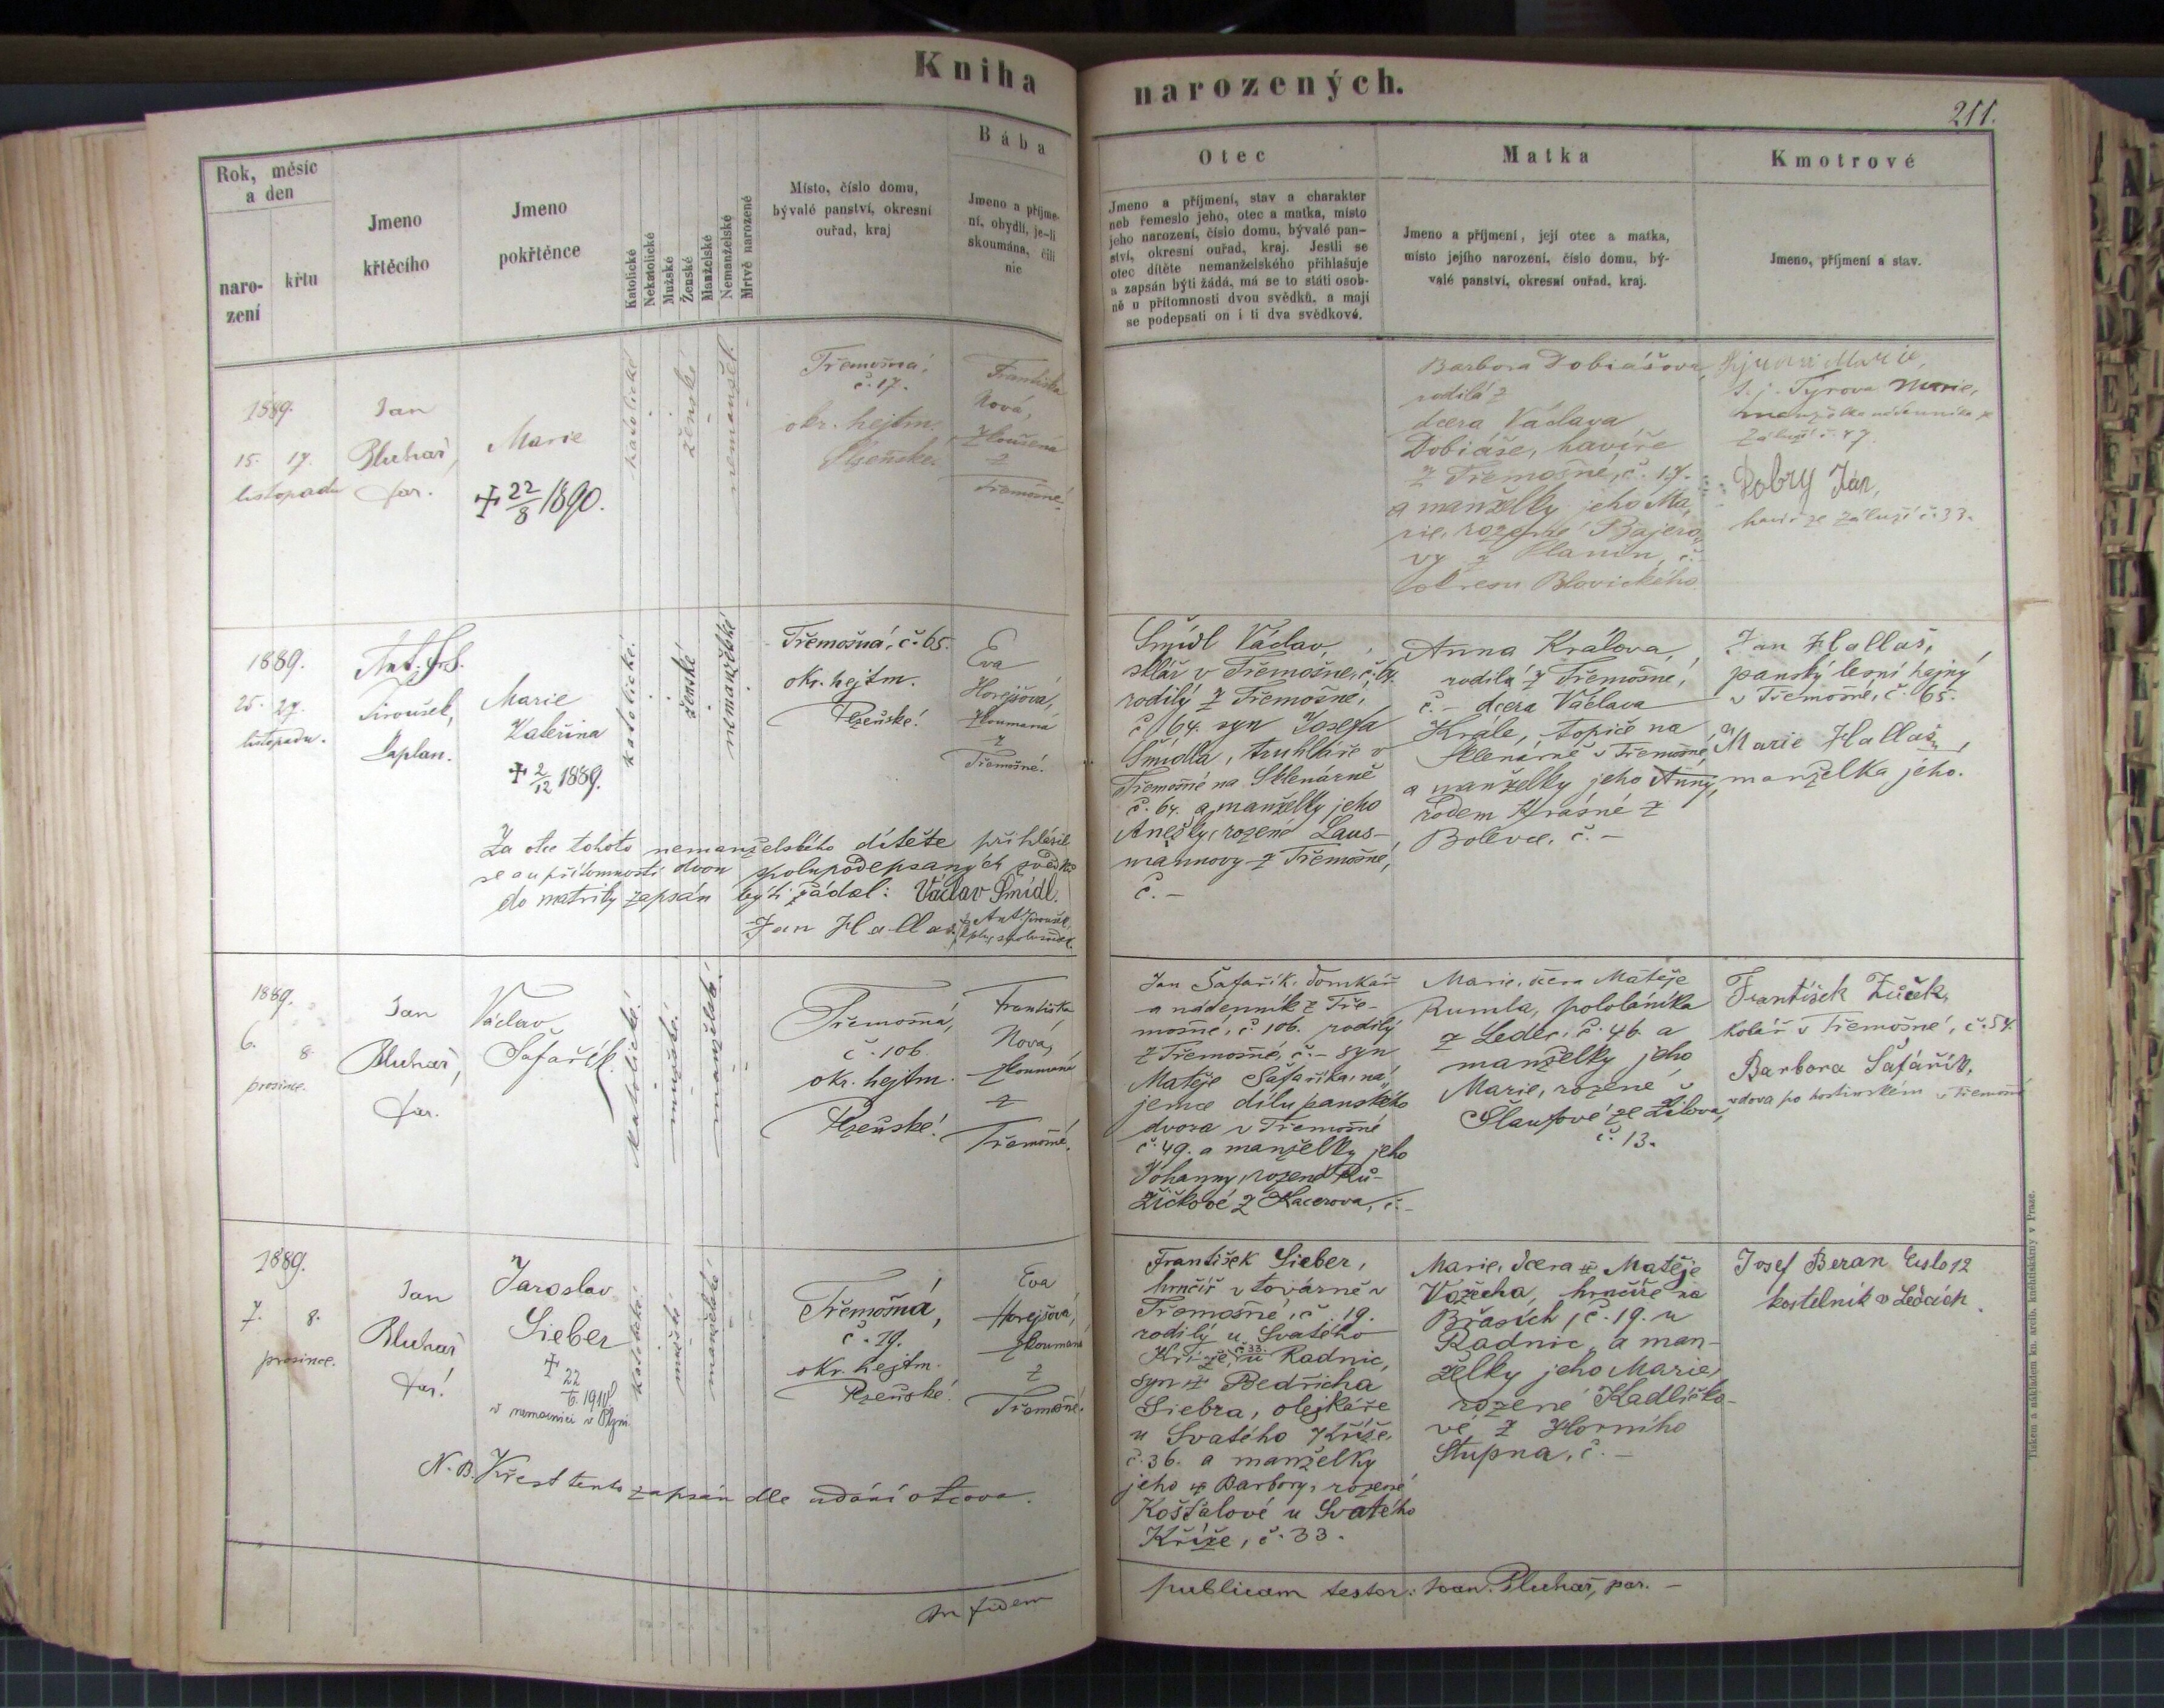 Kniha narozených.
211.
Rok, měsíc
a den
naro-
zení
křtu
Jmeno
křtěcího
Jmeno
pokřtěnce
Katolické
Nekatolické
Mužské
Ženské
Manželské
Nemanželské
Mrtvě narozené
Místo, číslo domu,
bývalé panství, okresní
ouřad, kraj
Bába
Jmeno a příjme-
ní, obydlí, je-li
skoumána, čili
nic
Otec
Jmeno a příjmení, stav a charakter
neb řemeslo jeho, otec a matka, místo
jeho narození, číslo domu, bývalé pan-
ství, okresní ouřad, kraj. Jestli se
otec dítěte nemanželského přihlašuje
a zapsán býti žádá, má se to státi osob-
ně u přítomnosti dvou svědků, a mají
se podepsati on i ti dva svědkové.
Matka
Jmeno a příjmení, její otec a matka,
místo jejího narození, číslo domu, bý-
valé panství, okresní ouřad, kraj.
Kmotrové
Jmeno, příjmení a stav.
1889.
15. 17.
listopadu
Jan
Bluhař,
far.
Marie
✝ 22/8 1890.
katolické
ženské
nemanžel.
Třemošná,
č. 17.
okr. hejtm.
Plzeňské.
Františka
Nová,
zkoušená
z
Třemošné.
Barbora Dobiášova,
rodilá z
dcera Václava
Dobiáše, havíře
z Třemošné, č. 17.
a manželky jeho Ma-
rie, rozené Bajero-
vy z Planin, č. -
okresu Blovického
Marie,
t. j. Tyrova Marie,
manželka nádenníka z
Záluží č. 47.
Dobrý Ján,
havíř ze Záluží č. 33.
1889.
25. 27.
listopadu.
Ant. Frt.
Jiroušek,
kaplan.
Marie
Kateřina
✝ 2/12 1889.
katolické.
ženské
nemanželské
Třemošná, č. 65.
okr. hejtm.
Plzeňské.
Eva
Horejšová,
zkoumaná
z
Třemošné.
Za otce tohoto nemanželského dítěte přihlásil
se a u přítomnosti dvou spolupodepsaných svědků
do matriky zapsán býti žádal: Václav Šmídl.
Jan Hallas, Ant. Jiroušek,
Šmídl Václav,
sklář v Třemošné, č. 64.
rodilý z Třemošné,
č. 64. syn Josefa
Šmídla, truhláře v
Třemošné na Sklenárně
č. 64. a manželky jeho
Anežky, rozené Laus-
mannovy z Třemošné,
č. -
Anna Králova,
rodilá z Třemošné,
č. - dcera Václava
Krále, topiče na
Sklenárně v Třemošné,
a manželky jeho Anny,
rodem Krásné z
Bolevce, č. -
Jan Hallas,
panský lesní hajný
v Třemošné, č. 65.
a
Marie Hallas,
manželka jeho.
1889.
6. 8.
prosince.
Jan
Bluhař,
far.
Václav
Šafařík.
Katolické.
mužské.
manželské.
Třemošná,
č. 106.
okr. hejtm.
Plzeňské.
Františka
Nová,
zkoumaná
z
Třemošné.
Jan Šafařík, domkář
a nádenník z Tře-
mošné, č. 106. rodilý
z Třemošné, č. - syn
Matěje Šafaříka, ná-
jemce dílu panského
dvora v Třemošné
č. 49. a manželky jeho
Johanny, rozené Rů-
žičkové z Kacerova, č. -
Marie, dcera Matěje
Rumla, pololáníka
z Ledec, č. 46. a
manželky jeho
Marie, rozené
Slaufové ze Žilova,
č. 13.
František Žůček,
kolář v Třemošné, č. 54.
Barbora Šafařík,
vdova po hostinském v Třemošné
1889.
7. 8.
prosince.
Jan
Bluhař
far.
Jaroslav
Sieber
✝ 22
v nemocnici v Plzni
katolické
mužské
manželské
Třemošná,
č. 19.
okr. hejtm.
Plzeňské.
Eva
Horejšová,
zkoumaná
z
Třemošné.
N. B. Křest tento zapsán dle udání otcova.
František Sieber,
hrnčíř v továrně v
Třemošné, č. 19.
rodilý u Svatého
Kříže, č. 33. u Radnic,
syn ✝ Bedřicha
Siebra, olejkáře
u Svatého Kříže,
č. 36. a manželky
jeho ✝ Barbory, rozené
Košťálové u Svatého
Kříže, č. 33.
Marie, dcera ✝ Matěje
Vožecha, hrnčíře na
Břasích, č. 19. u
Radnic a man-
želky jeho Marie,
rozené Kadlečko-
vé, z Horního
Stupna, č. -
Josef Beran číslo 12
kostelník v Ledcích
In fidem
publicam testor: Joan. Bluhař, par. -
Tiskem a nákladem kn. arcib. knihtiskárny v Praze.